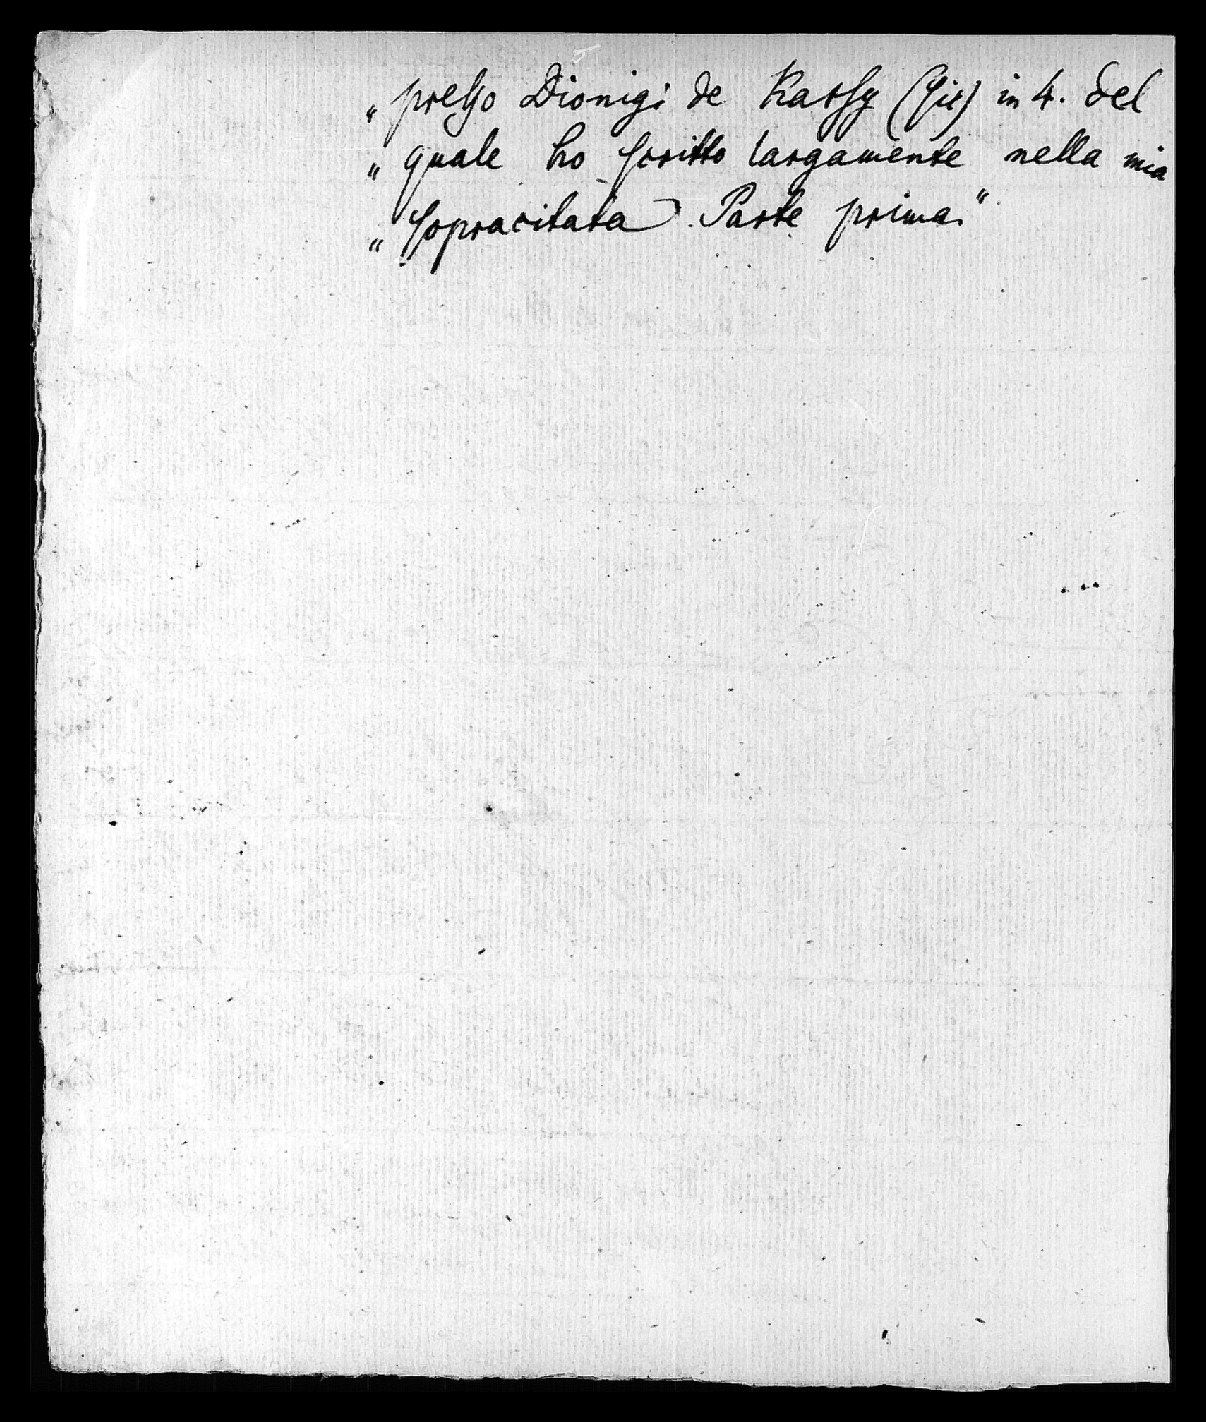 „ presso Dionigi de Karsy (sic) in 4. del
„ quale ho scritto largamente nella mia
„ sopracitata Parte prima."